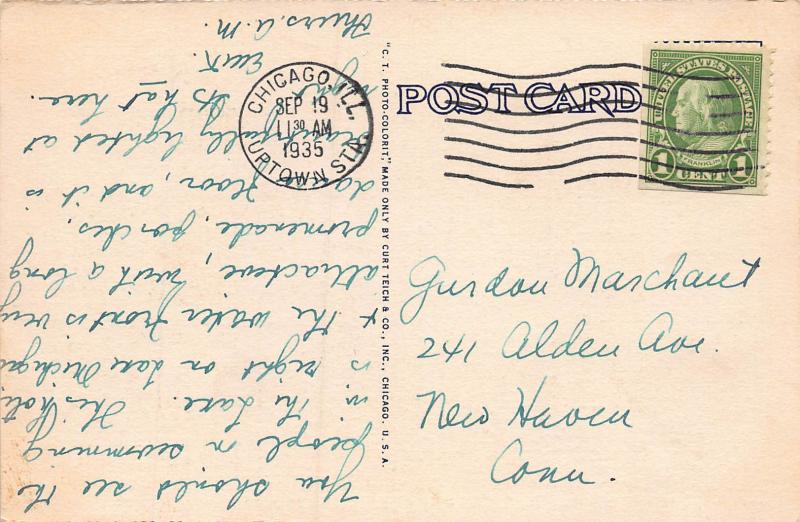 Thurs. a.m.
You should see the
people in swimming
in the Lake. This hotel
is right on Lake Michigan
+ the water front is very
attractive, with a long
promenade, porches,
dance floor, and it is
beautifully lighted at
night. Its hot here.
"C. T. PHOTO-COLORIT," MADE ONLY BY CURT TEICH & CO., INC., CHICAGO, U. S. A.
POST CARD
CHICAGO, ILL.
SEP 19
11 30 AM
1935
UPTOWN STA.
UNITED STATES POSTAGE
FRANKLIN
1 CENT 1
Gurdon Marchant
241 Alden Ave.
New Haven
Conn.